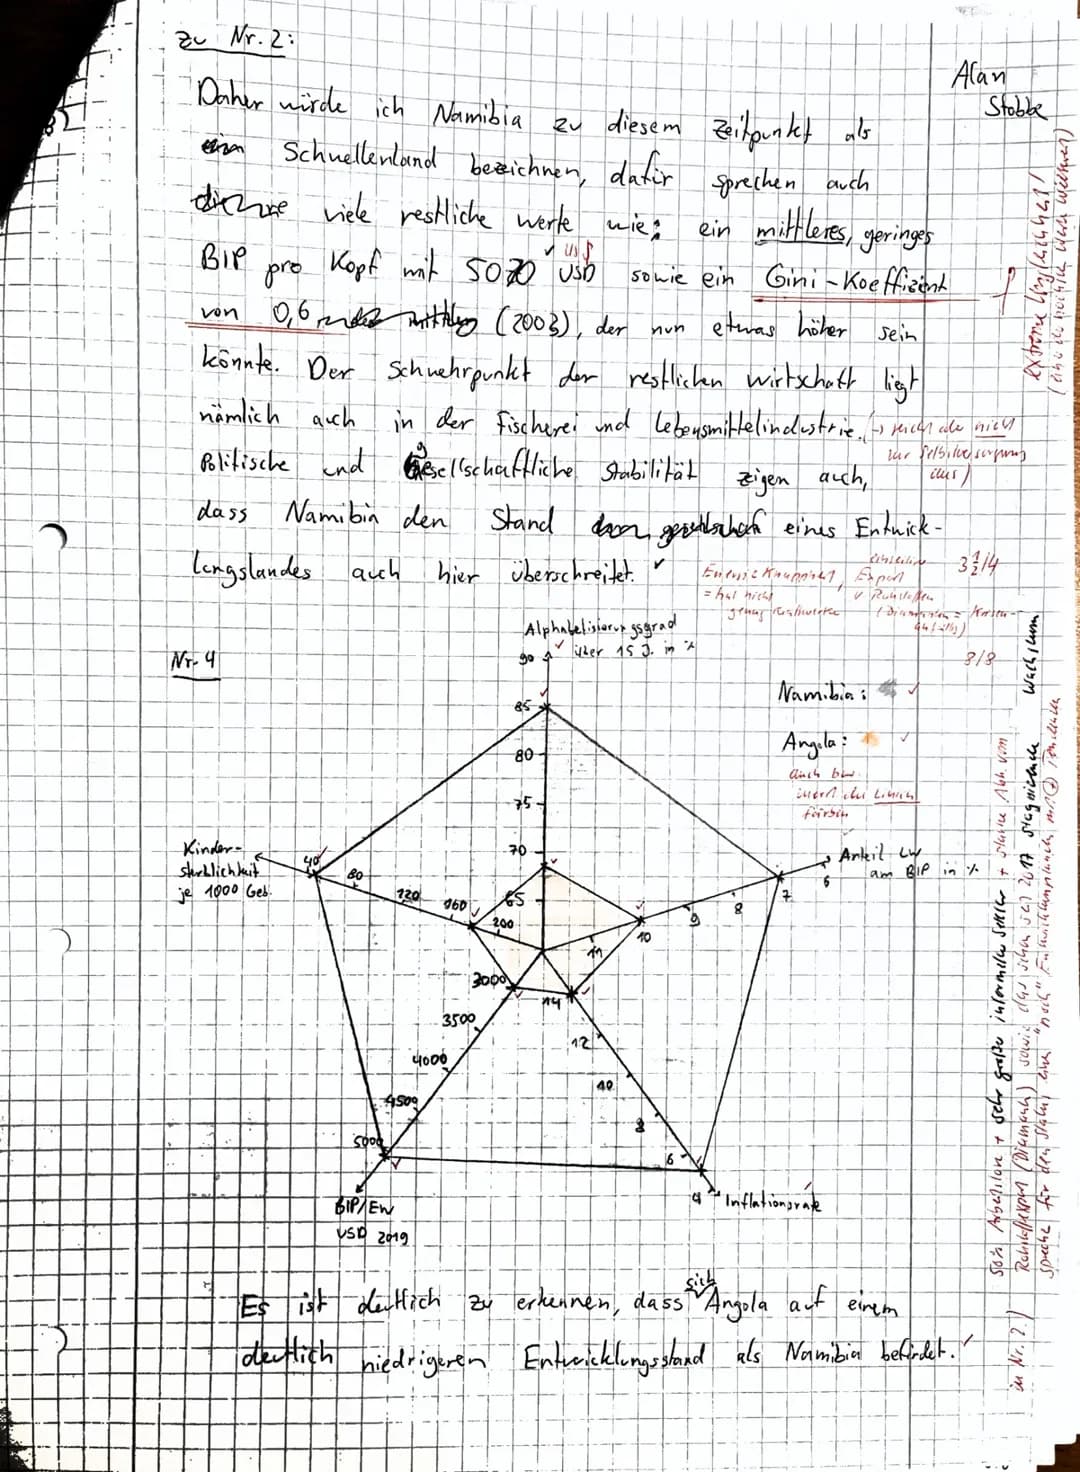 zu Nr. 2:
Alan
Stobbe
Daher würde ich Namibia zu diesem Zeitpunkt als
ein Schwellenland bezeichnen, dafür sprechen auch
viele restliche werte wie: ein mittleres, geringes
BIP pro Kopf mit 5070 USD sowie ein Gini-Koeffizient
von 0,6 (2003), der nun etwas höher sein
könnte. Der Schwehrpunkt der restlichen wirtschaft liegt
nämlich auch in der Fischerei und Lebensmittelindustrie.
(→ reicht aber nicht
zur Selbstversorgung
aus)
Politische und gesellschaftliche Stabilität zeigen auch,
dass Namibia den Stand eines Entwick-
lungslandes auch hier überschreitet.
Energieknappheit, Export
= hat nicht v. Rohstoffen
genug Kraftwerke (Diamanten =
3 1/2 /4
extreme Ungleichheit!
Nr. 4
8/8
Alphabetisierungsgrad
über 15 J. in %
90
85
80
75
70
65
Namibia:
Angola:
auch bw.
innen die Linien
färben
Kinder-
sterblichkeit
je 1000 Geb.
40
80
120
160
200
Anteil LW
am BIP in %
6
7
8
9
10
11
3000
3500
4000
4500
5000
BIP/EW
USD 2019
14
12
10
8
6
4
Inflationsrate
50% Arbeitslose + sehr großer informeller Sektor + starke Abh. vom
Rohstoffexport (Diamanten) sowie das schon seit 2017 stagnierende Wachstum
spreche für den Status eines "noch" Entwicklungslands mit Tendenzen
in Nr. 2!)
Es ist deutlich zu erkennen, dass sich Angola auf einem
deutlich niedrigeren Entwicklungsstand als Namibia befindet.